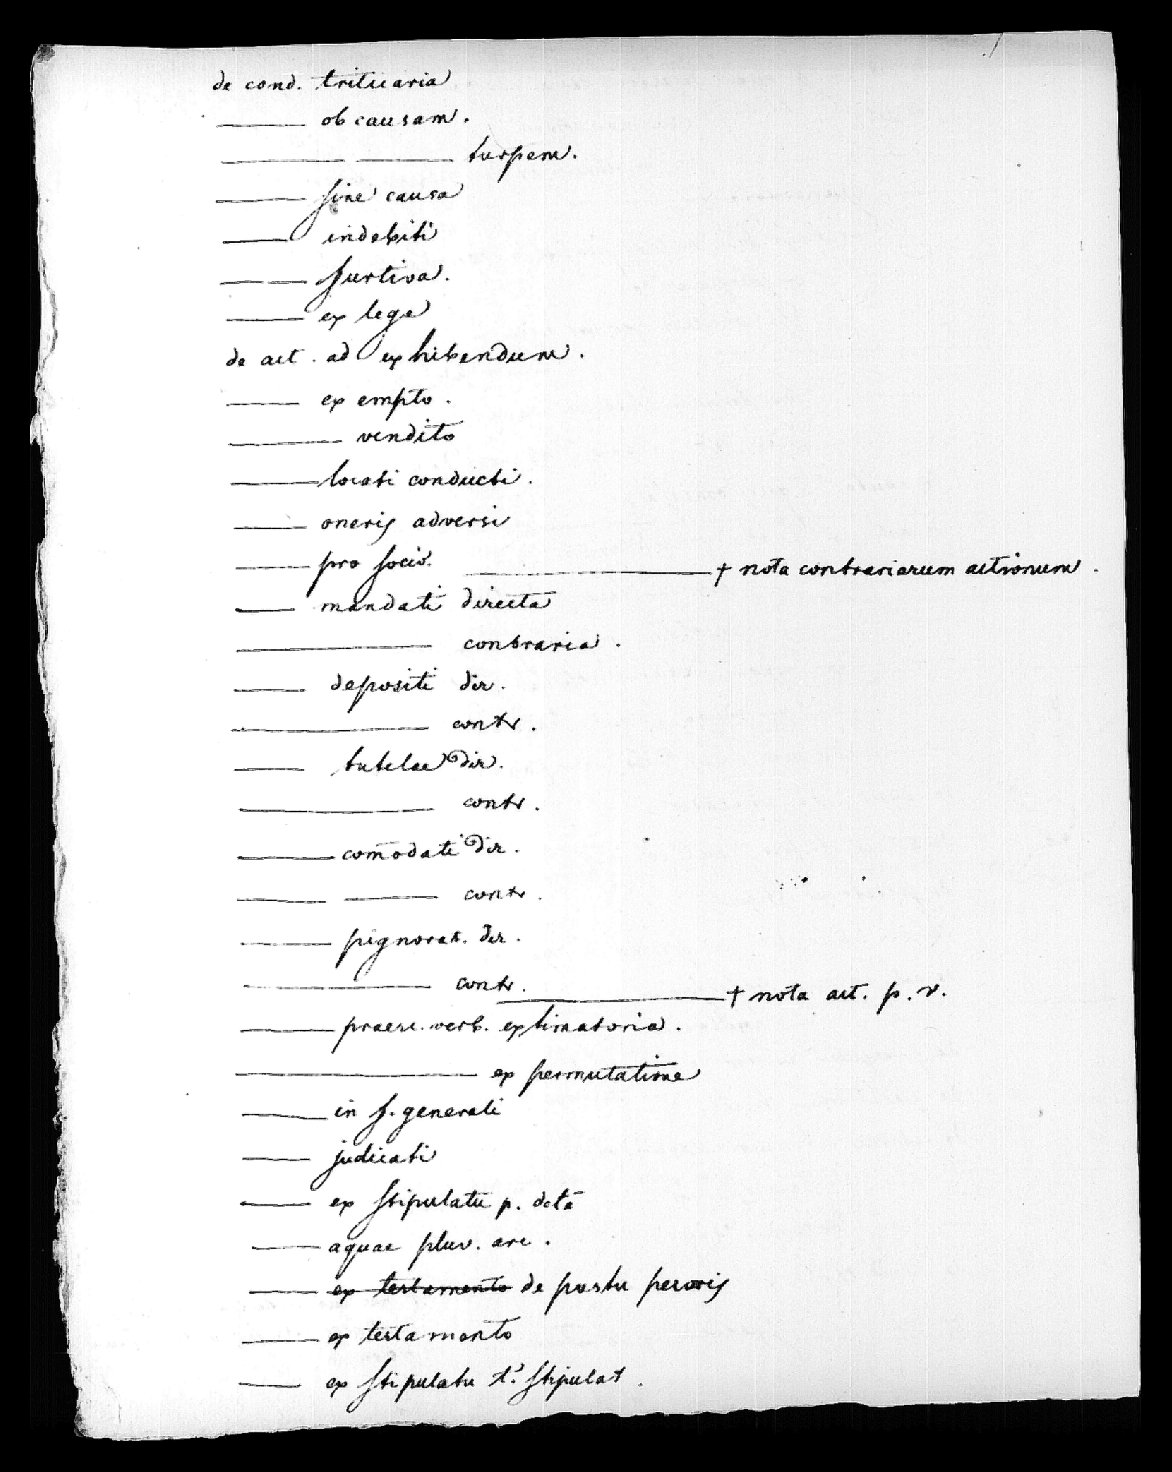 de cond. triticaria
——— ob causam.
——— ——— turpem.
——— sine causa
——— indebiti
——— furtiva.
——— ex lege
de act. ad exhibendum.
——— ex empto.
——— vendito
——— locati conducti.
——— oneris adversi
——— pro socio. ——— + nota contrariarum actionum.
——— mandati directa
——— contraria.
——— depositi dir.
——— contr.
——— tutelae dir.
——— contr.
——— com̄odati dir.
——— ——— contr.
——— pignorat. dir.
——— contr. ——— + nota act. p. v.
——— praesc. verb. extimatoria.
——— ex permutatione
——— in f. generali
——— judicati
——— ex stipulatu p. data
——— aquae pluv. arc.
——— ex testamento de pastu pecoris
——— ex testamento
——— ex stipulatu t. stipulat.